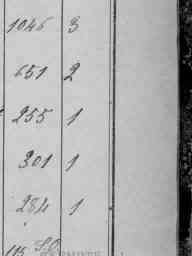 1046 3
651 2
255 1
301 1
284 1
115